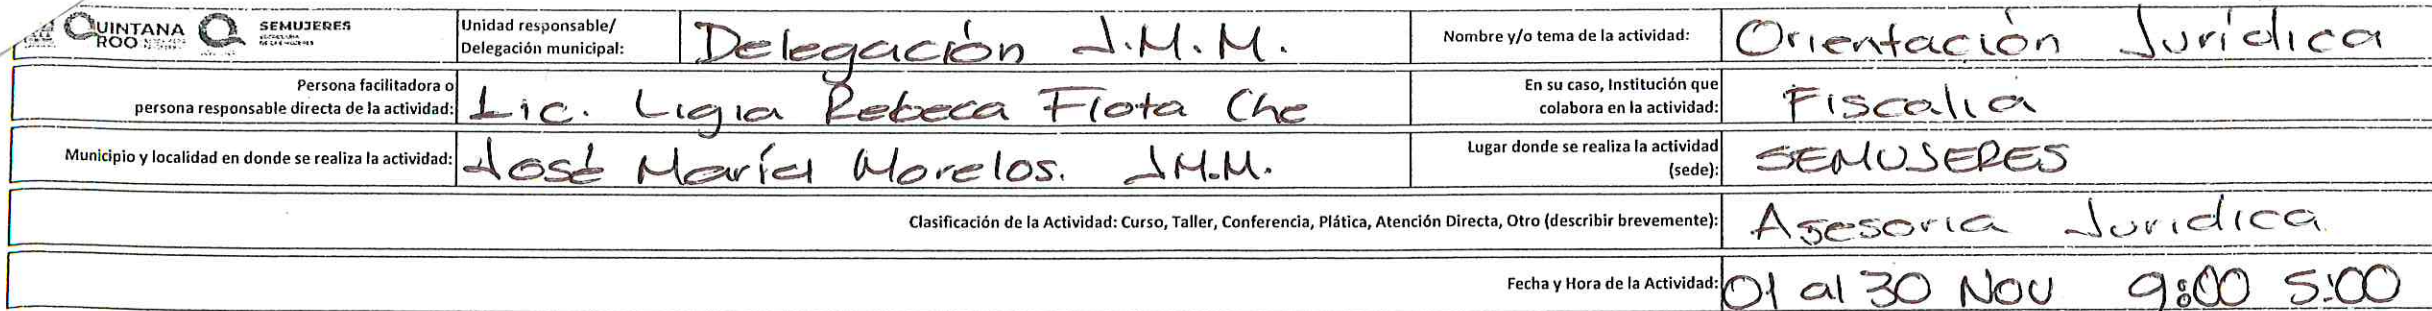 QUINTANA ROO SEMUJERES
Unidad responsable/
Delegación municipal:
Delegación J.M.M.
Nombre y/o tema de la actividad:
Orientación Jurídica
Persona facilitadora o
persona responsable directa de la actividad:
Lic. Ligia Rebeca Flota Che
En su caso, Institución que
colabora en la actividad:
Fiscalia
Municipio y localidad en donde se realiza la actividad:
José María Morelos. J.M.M.
Lugar donde se realiza la actividad
(sede):
SEMUJERES
Clasificación de la Actividad: Curso, Taller, Conferencia, Plática, Atención Directa, Otro (describir brevemente):
Asesoria Juridica
Fecha y Hora de la Actividad:
01 al 30 Nov 9:00 5:00